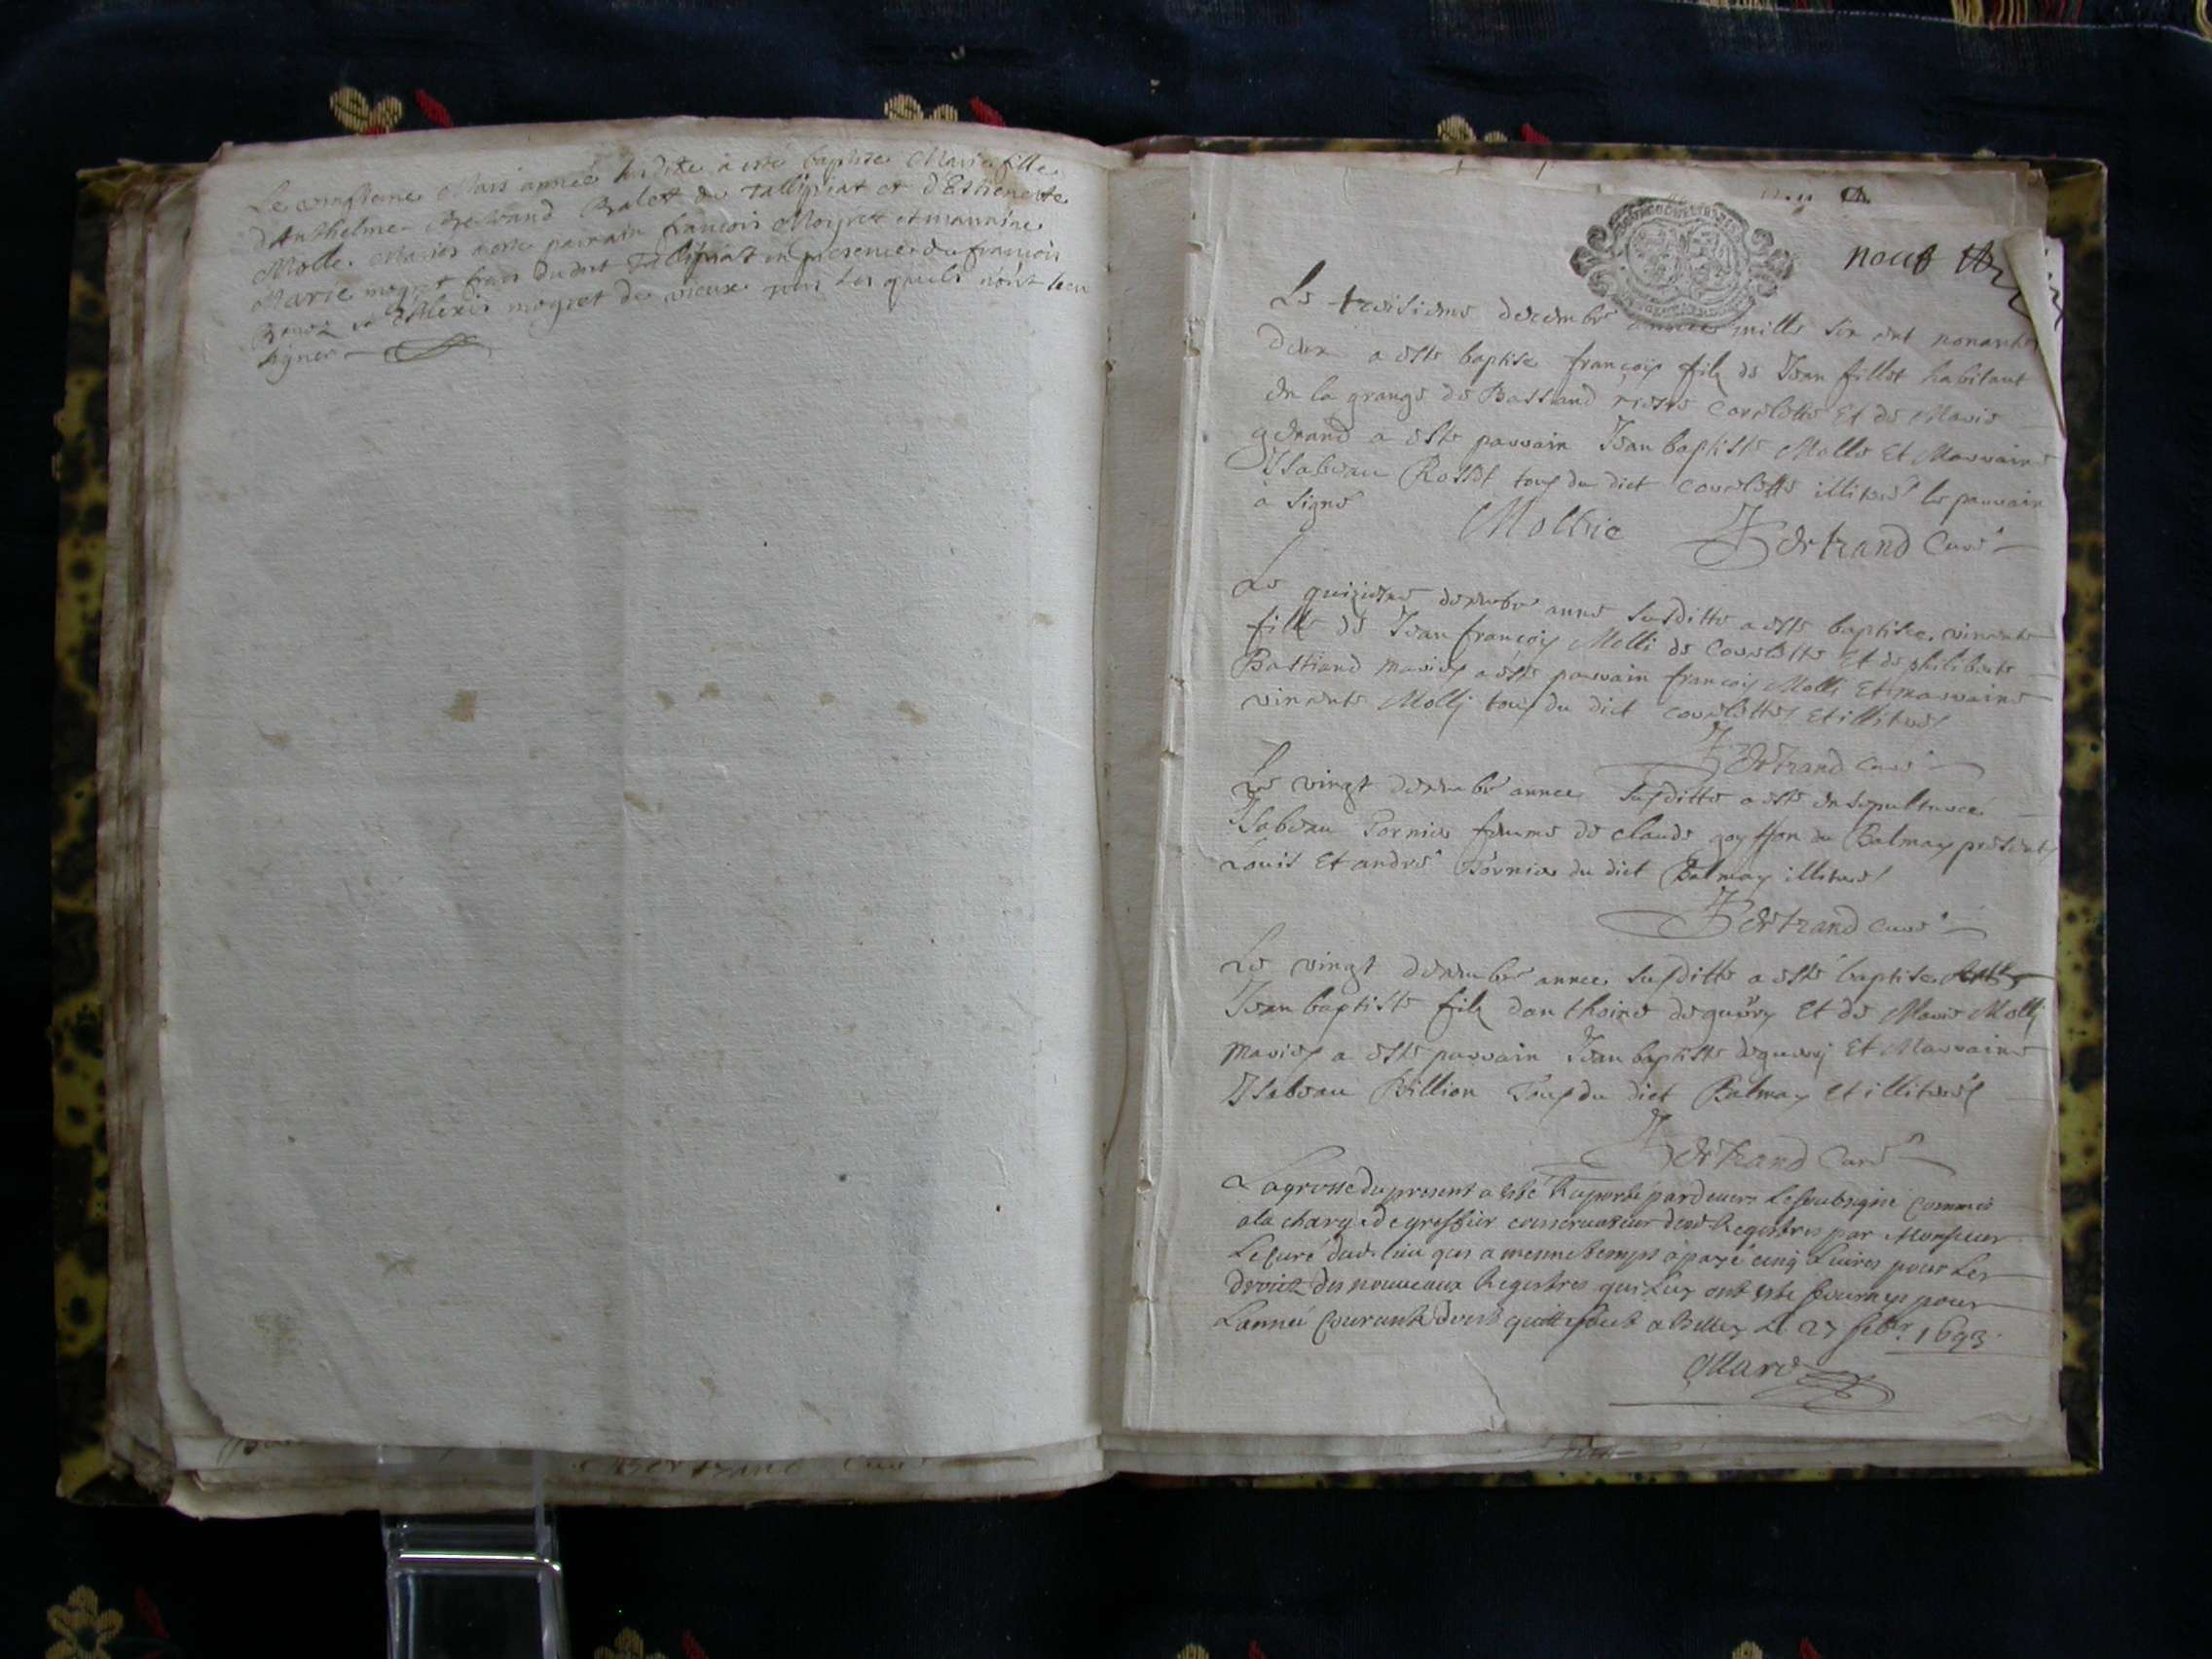 Le vingtieme Mars année susdite a esté baptisée Marie fille
d'Anthelme Bertrand Balet de Tallipiat et d'Estienette
Molle. Mariés a esté parrain françois Moyret et marraine
Marie moyret frais dudit Tallipiat en presence du françois
et Alexis moyret de vieux tous lesquels n'ont sceu
signer
neuf
Le troisieme decembre année mille six cent nonante
deux a esté baptise françois filz de Jean fillet habitant
en la grange de Bastiand riere Corcelette Et de Marie
gerand a esté parrain Jean baptiste Molle Et Marraine
Isabeau Rosset tous du dict Corcelette illiteres le parrain
à signé
Mollie Bertrand Curé
Le quizieme decembre anné susditte a esté baptisée vincente
fille de Jean françois Molli de Corcelette Et de philiberte
Bastiand mariés a esté parrain françois Molli Et marraine
vincente Molly tous du dict corcelettes Et illiteres
Bertrand Curé
Le vingt decembre année susditte a esté ensepulturée
Isabeau Fornier femme de claude goyffon du Balmay presents
Louis Et andré Fornier du dict Balmay illiteres
Bertrand curé
Le vingt decembre année susditte a esté baptisé
Jean baptiste filz danthoine deguerry Et de Marie Molly
mariés a esté parrain Jean baptiste deguerry Et Marraine
Isabeau Billion Tous du dict Balmay Et illiteres
Bertrand Curé
La grosse du present a esté Raporté pardevers Le soubsigné Commis
a la charge de greffier conservateur desd Registres par Monsieur
Le Curé dud. lieu qui a mesme temps a payé cinq Livres pour Les
droits des nouveaux Registres qui Luy ont esté fournys pour
L'année Courante dont quitte fait a Belley Le 27 febr 1693.
Bertrand Curé